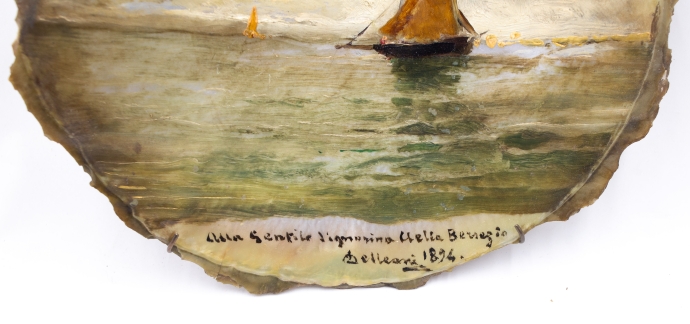 Alla Gentile Signorina Stella Bersezio
Delleani 1894.